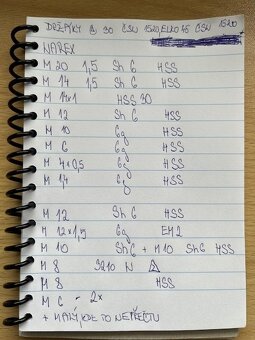 DRŽÁKY @ 30 ČSN 1520 ELKO 45 ČSN 1520
NAREX
M 20 1,5 Sh 6 HSS
M 14 1,5 Sh 6 HSS
M 14x1 HSS 30
M 12 Sh 6 HSS
M 10 6g HSS
M 6 6g HSS
M 4x0,5 6g HSS
M 1,4 6g HSS
M 12 Sh 6 HSS
M 12x1,5 6g EH2
M 10 Sh 6 + M10 Sh 6 HSS
M 8 3210 N
M 8 HSS
M 6 - 2x
+ MALÝ KDE TO NEPŘEČTU